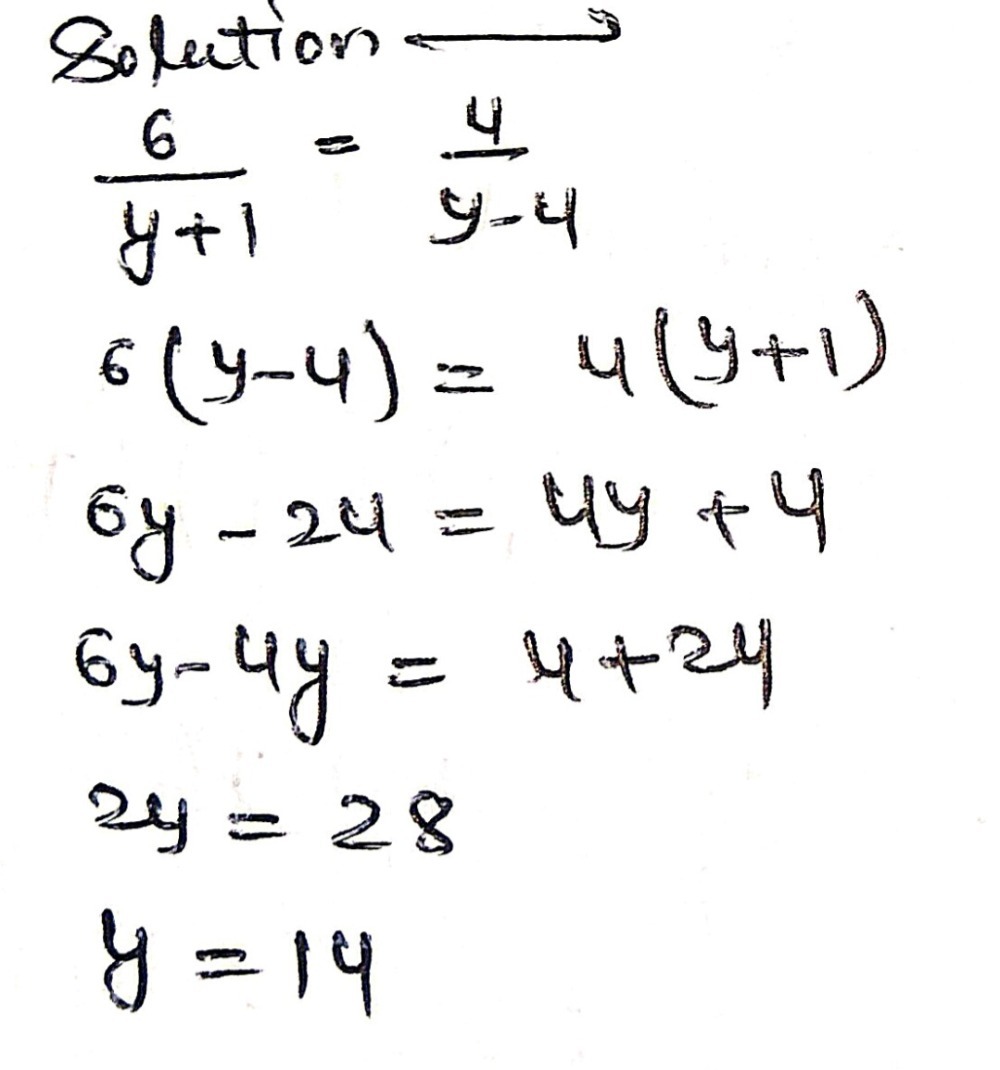 Solution ⟶
6/(y+1) = 4/(y-4)
6(y-4) = 4(y+1)
6y - 24 = 4y + 4
6y - 4y = 4 + 24
2y = 28
y = 14